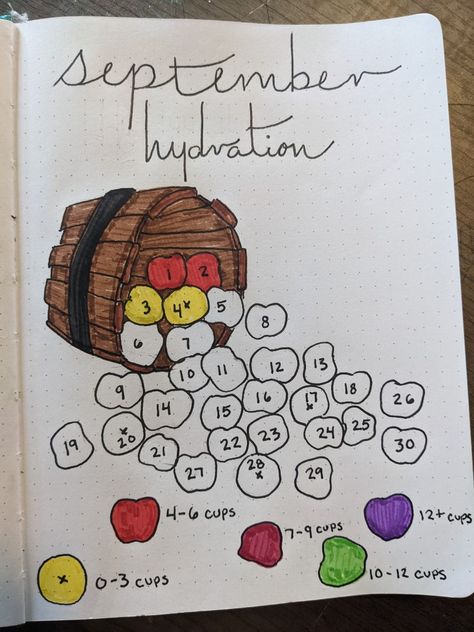 september
hydration
1 2
3 4 5
6 7 8
9 10 11 12 13
14 15 16 17 18
19 20 21 22 23 24 25 26
27 28 29 30
4-6 CUPS
7-9 CUPS
12+ CUPS
0-3 CUPS
10-12 CUPS